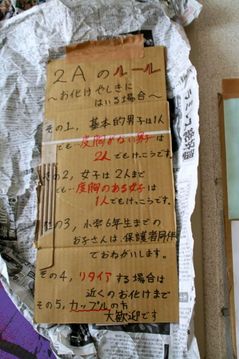 2Aのルール
～お化けやしきに
はいる場合～
その1, 基本的男子は1人
でも…度胸がない男子は
2人でもけっこうです。
その2, 女子は2人まで
でも…度胸のある女子は
1人でもけっこうです。
その3, 小学6年生までの
お子さんは保護者同伴
でおねがいします。
その4, リタイアする場合は
近くのお化けまで
その5, カップルの方
大歓迎です